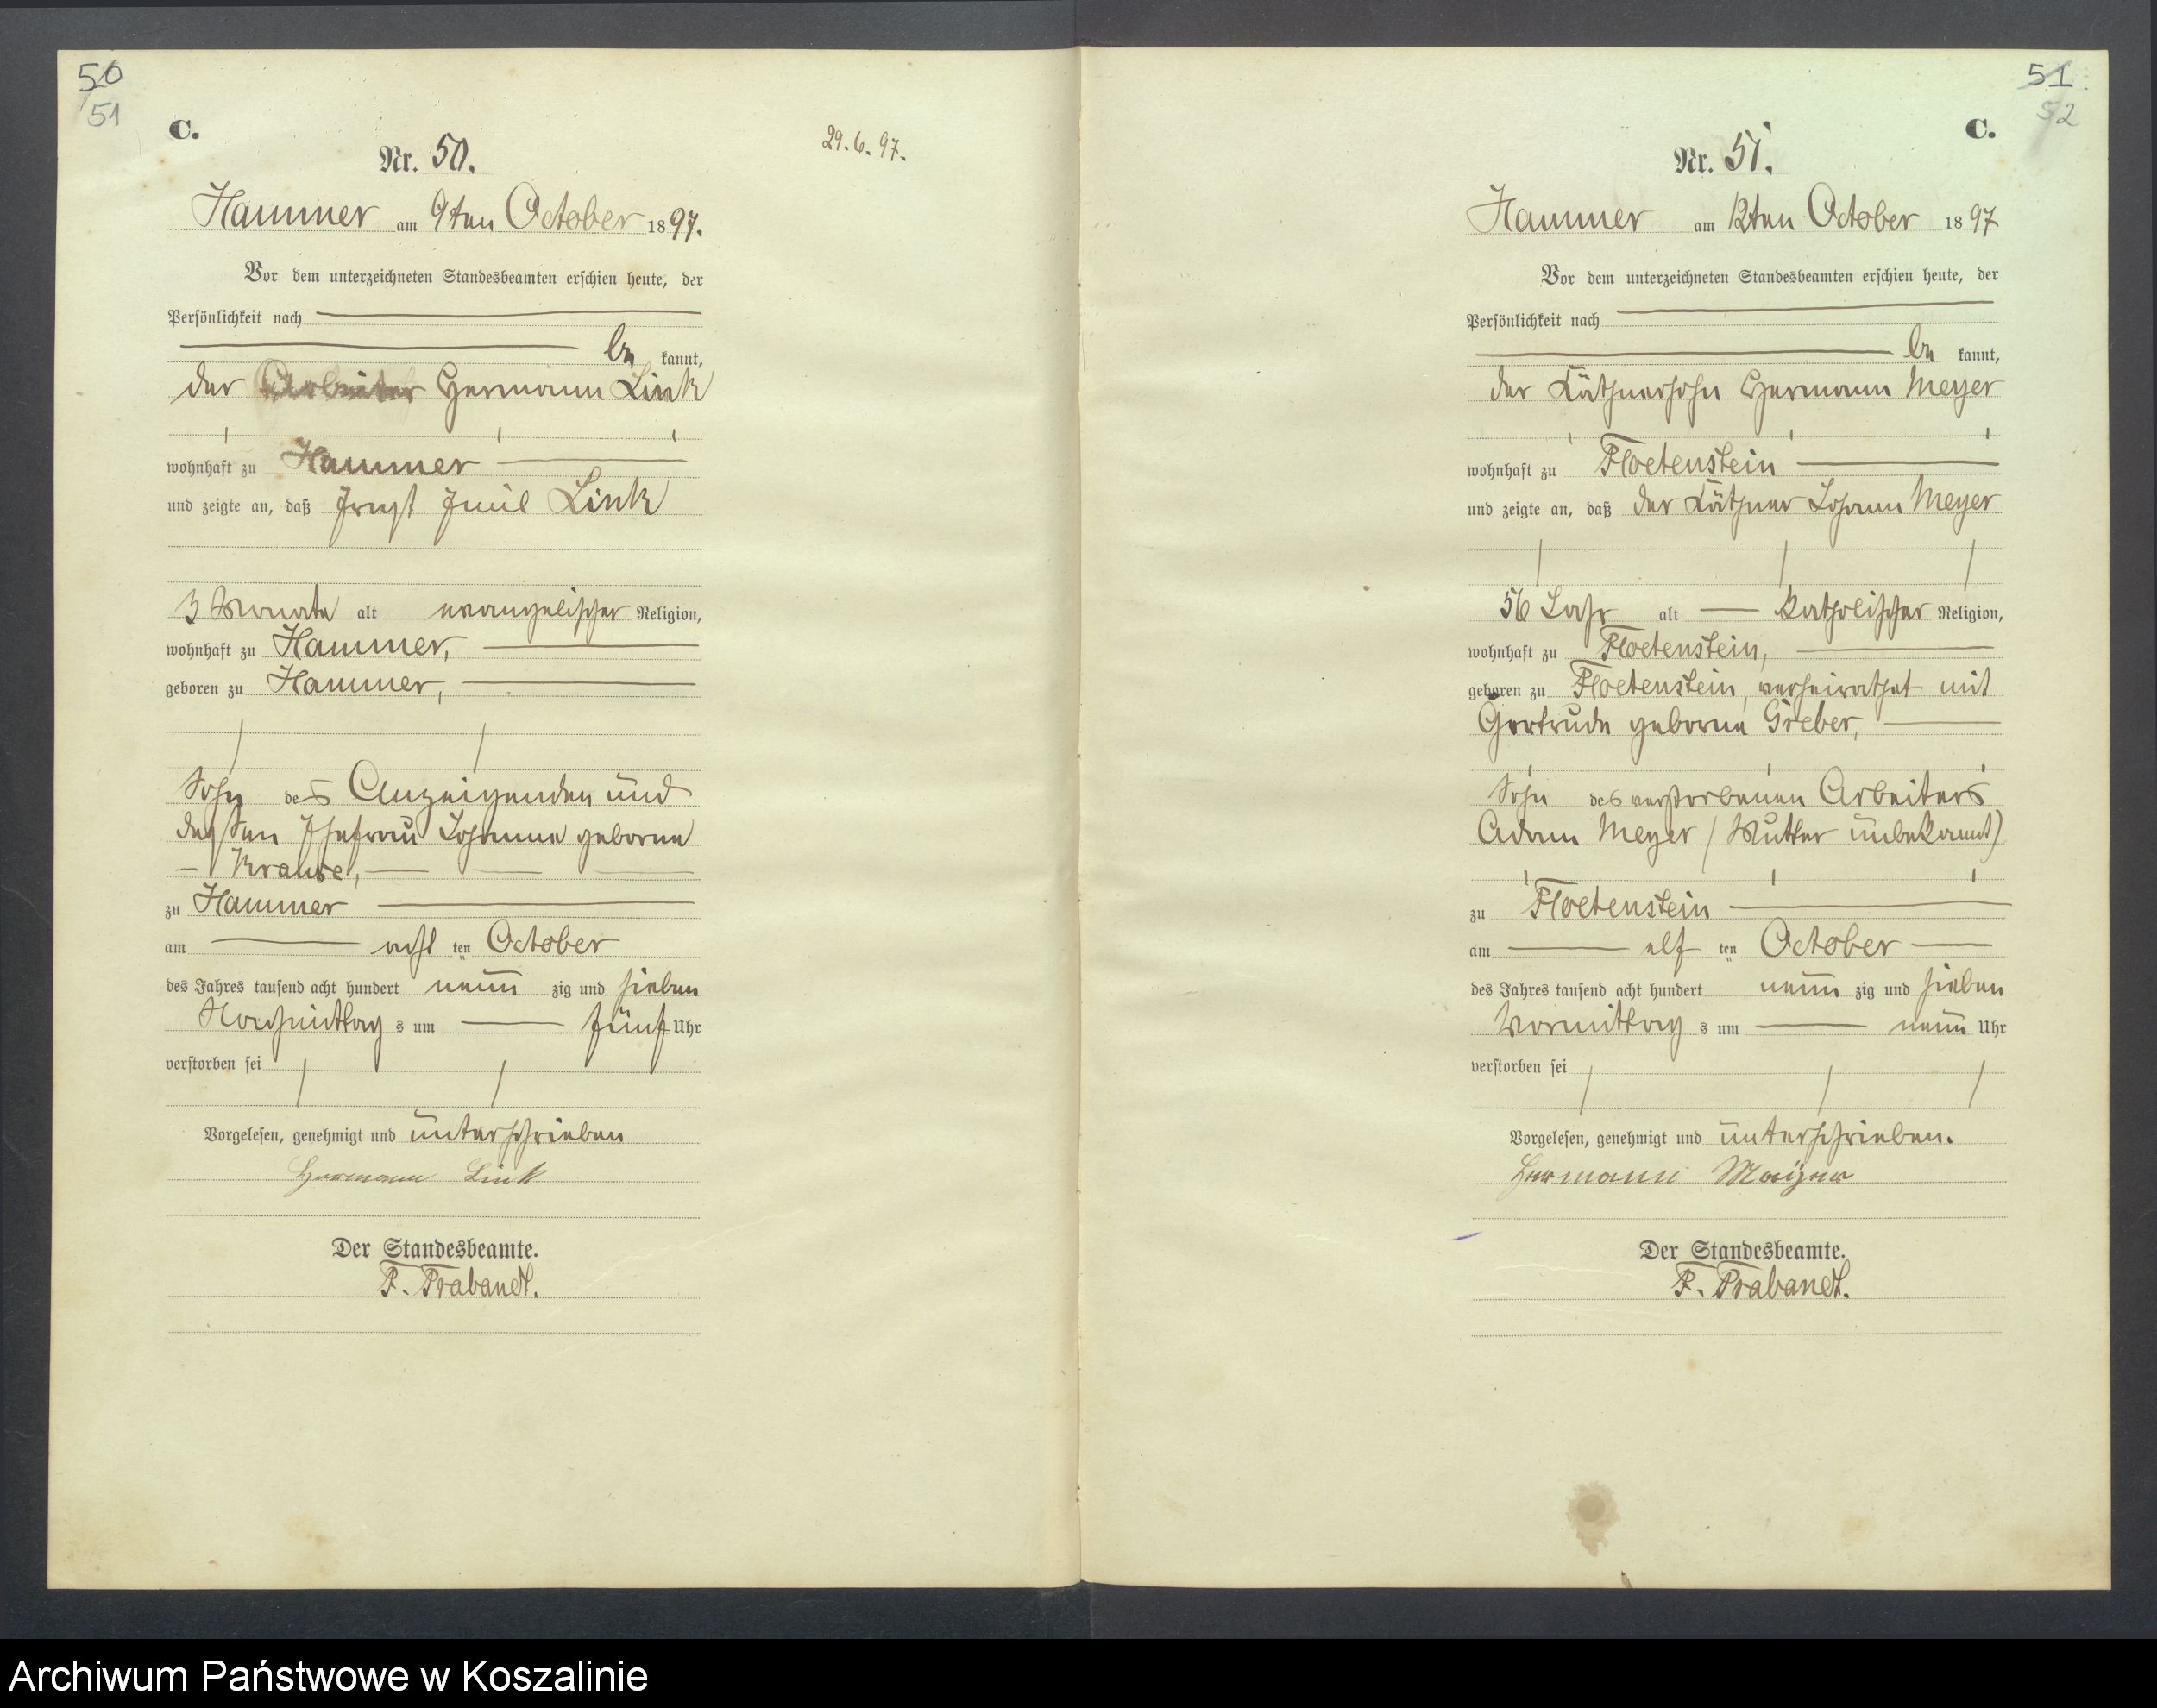 50
51
C.
Nr. 50.
29.6.97.
Hammer am 9ten October 1897.
Vor dem unterzeichneten Standesbeamten erschien heute, der
Persönlichkeit nach
be kannt,
der Arbeiter Hermann Link
wohnhaft zu Hammer
und zeigte an, daß Ernst Emil Link
3 Monate alt evangelischer Religion,
wohnhaft zu Hammer,
geboren zu Hammer,
Sohn des Anzeigenden und
dessen Ehefrau Johanna geborne
Krause,
zu Hammer
am acht ten October
des Jahres tausend acht hundert neun zig und sieben
Nachmittag s um fünf Uhr
verstorben sei
Vorgelesen, genehmigt und unterschrieben
Hermann Link
Der Standesbeamte.
F. Prabandt.
51
52
C.
Nr. 51.
Hammer am 12ten October 1897
Vor dem unterzeichneten Standesbeamten erschien heute, der
Persönlichkeit nach
be kannt,
der Käthnersohn Hermann Meyer
wohnhaft zu Floetenstein
und zeigte an, daß der Käthner Johann Meyer
56 Jahr alt katholischer Religion,
wohnhaft zu Floetenstein,
geboren zu Floetenstein, verheirathet mit
Gertrude geborne Greber,
Sohn des verstorbenen Arbeiters
Adam Meyer (Mutter unbekannt)
zu Floetenstein
am elf ten October
des Jahres tausend acht hundert neun zig und sieben
Vormittag s um neun Uhr
verstorben sei
Vorgelesen, genehmigt und unterschrieben.
Hermann Meÿer
Der Standesbeamte.
F. Prabandt.
Archiwum Państwowe w Koszalinie